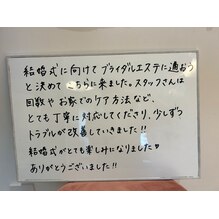 結婚式に向けてブライダルエステに通おう
と決めてこちらに来ました。スタッフさんは
回数やお家でのケア方法など、
とても丁寧に対応してくださり、少しずつ
トラブルが改善していきました!!
結婚式がとても楽しみになりました♡
ありがとうございました!!